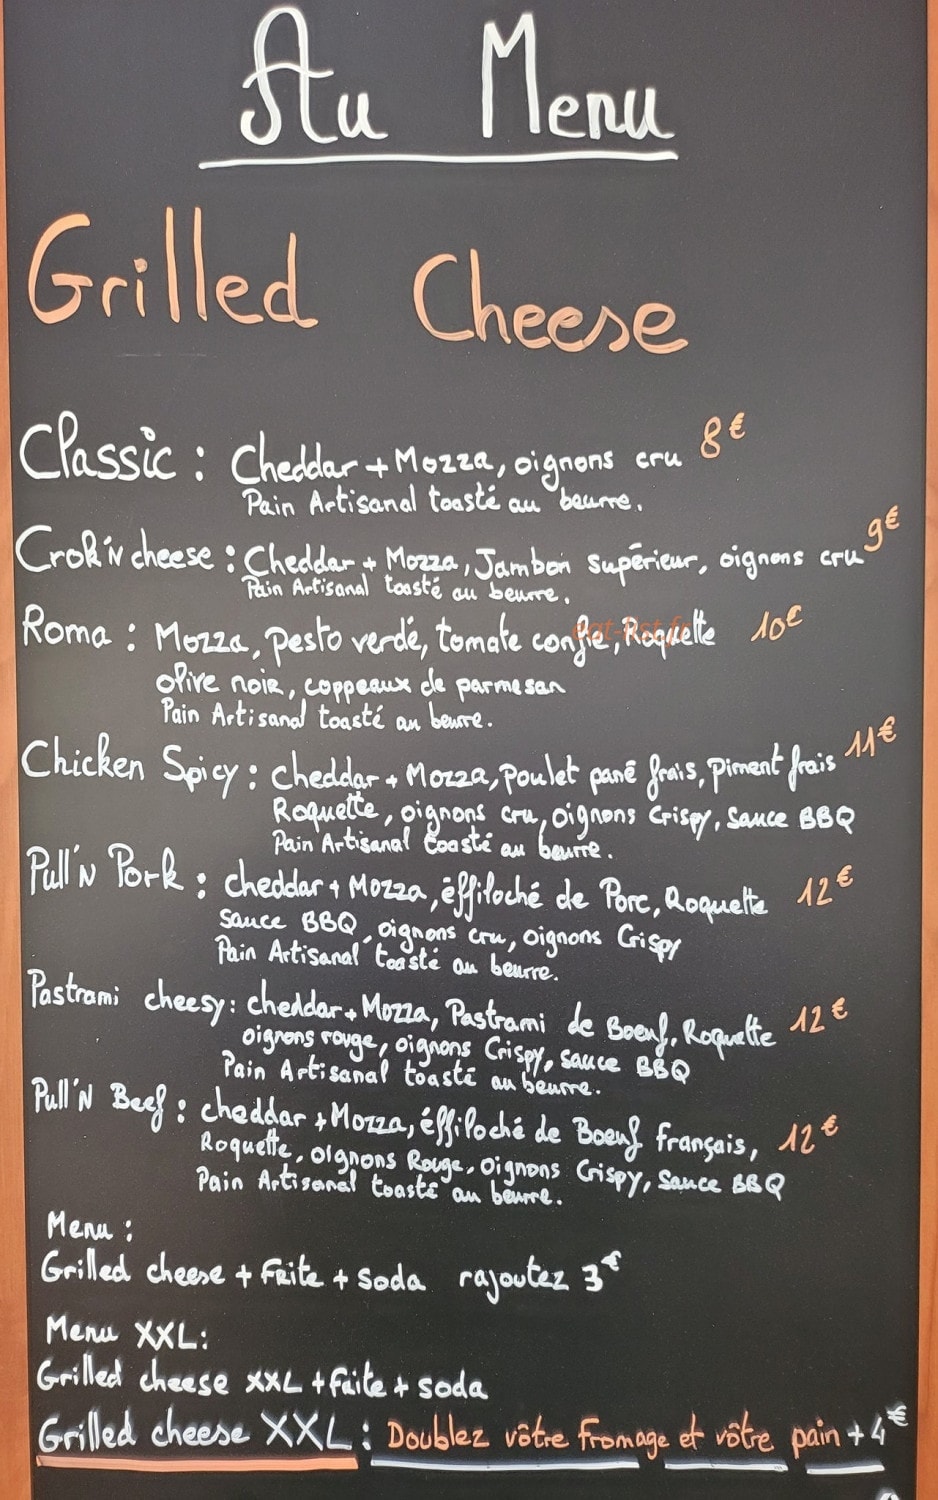 Au Menu
Grilled Cheese
Classic : Cheddar + Mozza, oignons cru 8€
Pain Artisanal toasté au beurre.
Crok'N cheese : Cheddar + Mozza, Jambon supérieur, oignons cru 9€
Pain Artisanal toasté au beurre.
Roma : Mozza, pesto verdé, tomate confie, Roquette 10€
eat-list.fr
olive noir, coppeaux de parmesan
Pain Artisanal toasté au beurre.
Chicken Spicy : cheddar + Mozza, Poulet pané frais, piment frais 11€
Roquette, oignons cru, oignons Crispy, sauce BBQ
Pain Artisanal toasté au beurre.
Pull'N Pork : cheddar + Mozza, éffiloché de Porc, Roquette 12€
sauce BBQ, oignons cru, oignons Crispy
Pain Artisanal toasté au beurre.
Pastrami cheesy : cheddar + Mozza, Pastrami de Boeuf, Roquette 12€
oignons rouge, oignons Crispy, sauce BBQ
Pain Artisanal toasté au beurre.
Pull'N Beef : cheddar + Mozza, éffiloché de Boeuf français, 12€
Roquette, oignons Rouge, oignons Crispy, sauce BBQ
Pain Artisanal toasté au beurre.
Menu :
Grilled cheese + Frite + soda rajoutez 3€
Menu XXL :
Grilled cheese XXL + frite + soda
Grilled cheese XXL : Doublez vôtre fromage et vôtre pain + 4€